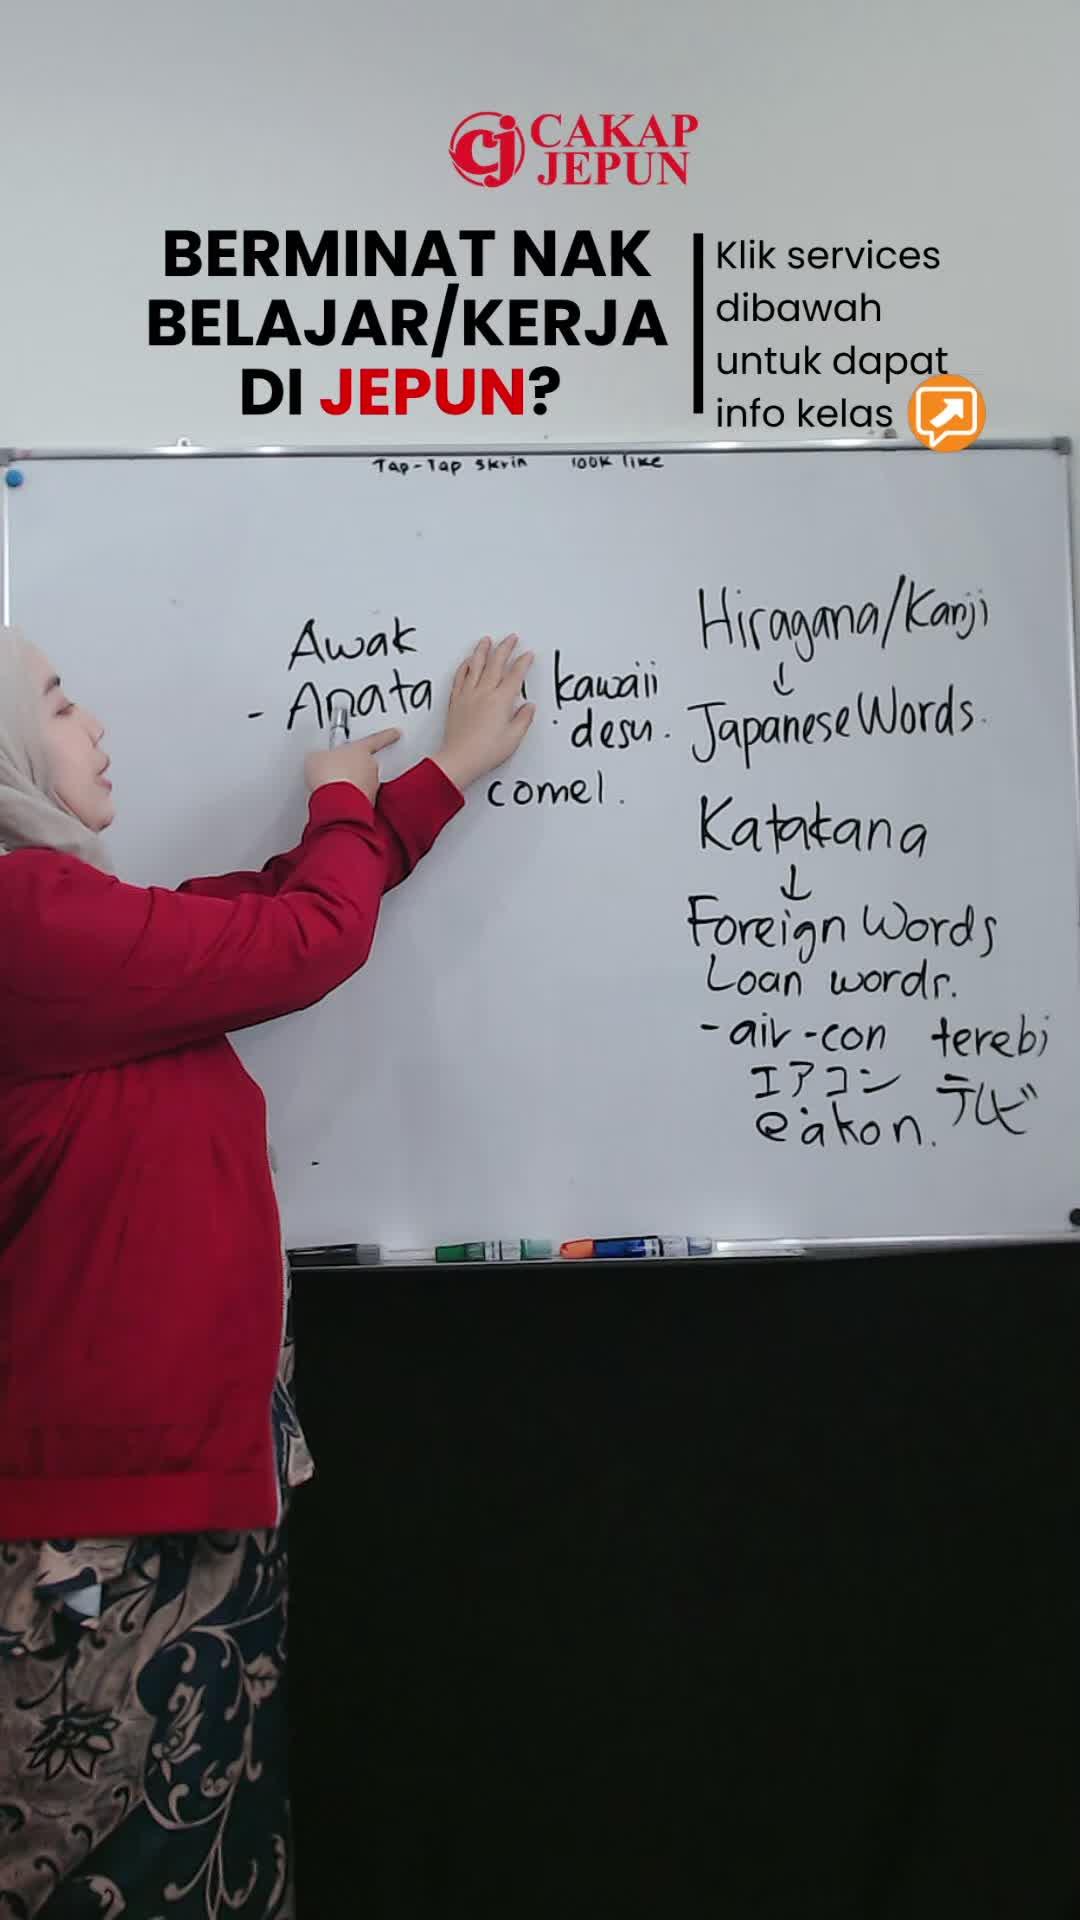 CAKAP
JEPUN
BERMINAT NAK
BELAJAR/KERJA
DI JEPUN?
Klik services
dibawah
untuk dapat
info kelas
Tap-Tap skrin 100K like
Awak
- Anata
kawaii
desu.
comel.
Hiragana/Kanji
↓
Japanese Words.
Katakana
↓
Foreign Words
Loan words.
- air-con terebi
エアコン テレビ
eakon.